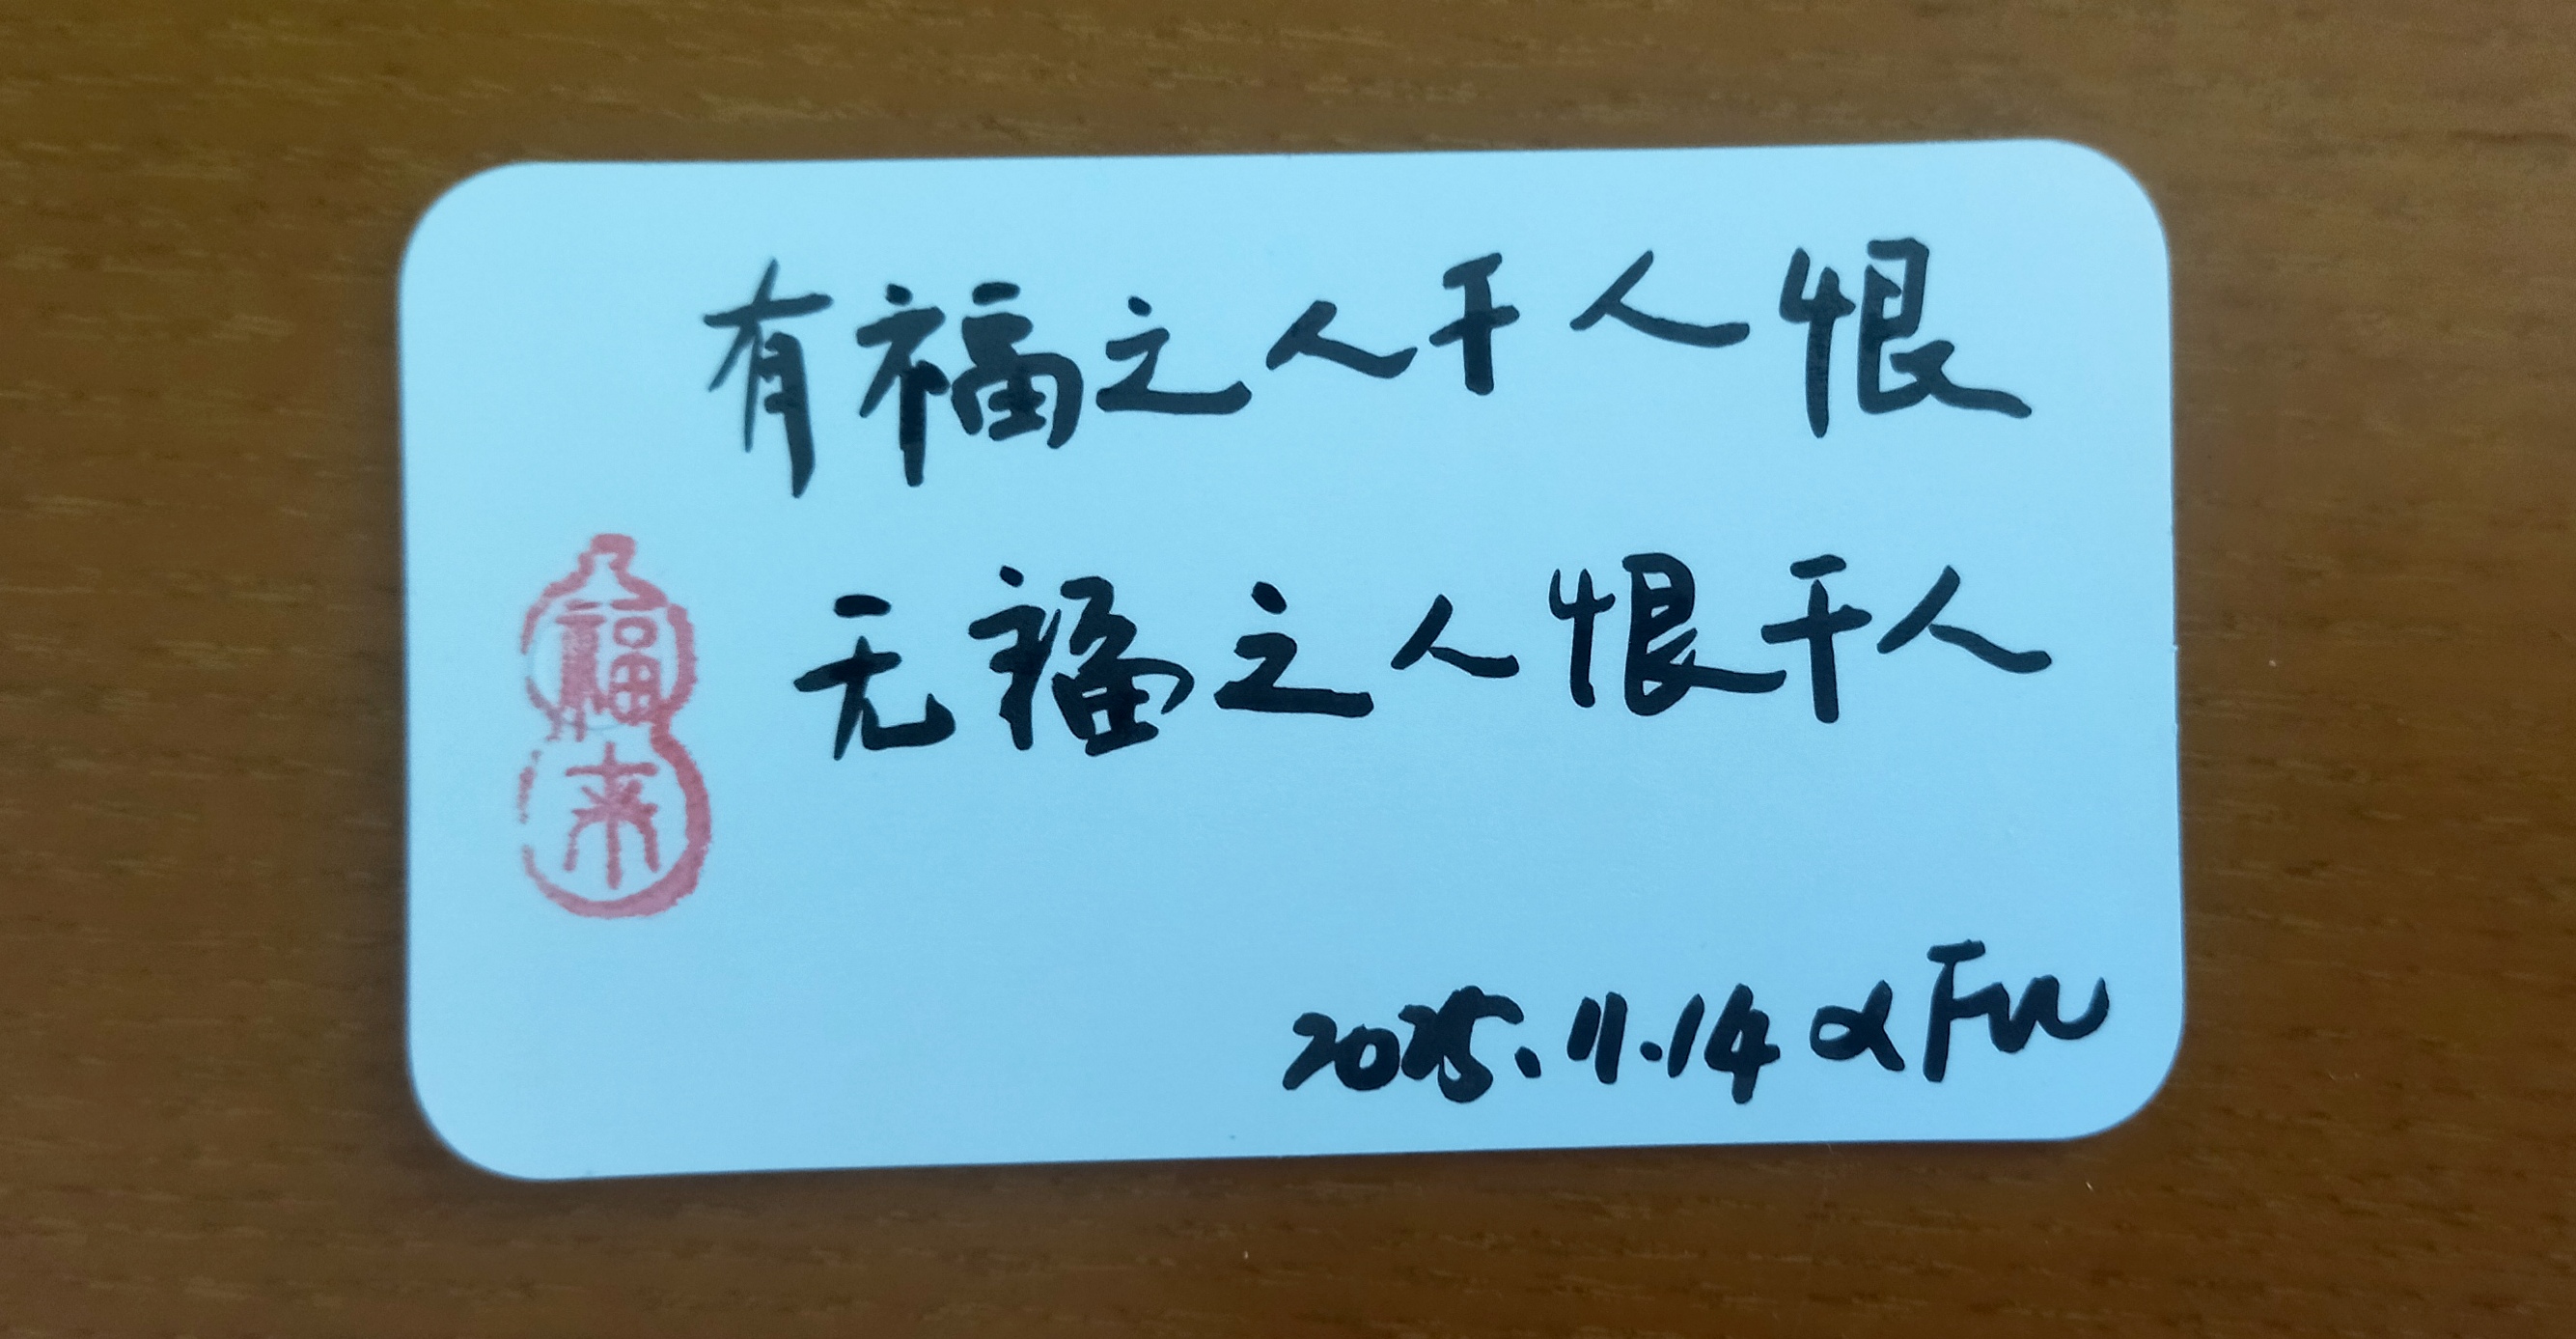 有福之人千人恨
无福之人恨千人
福来
2025.11.14 αFu